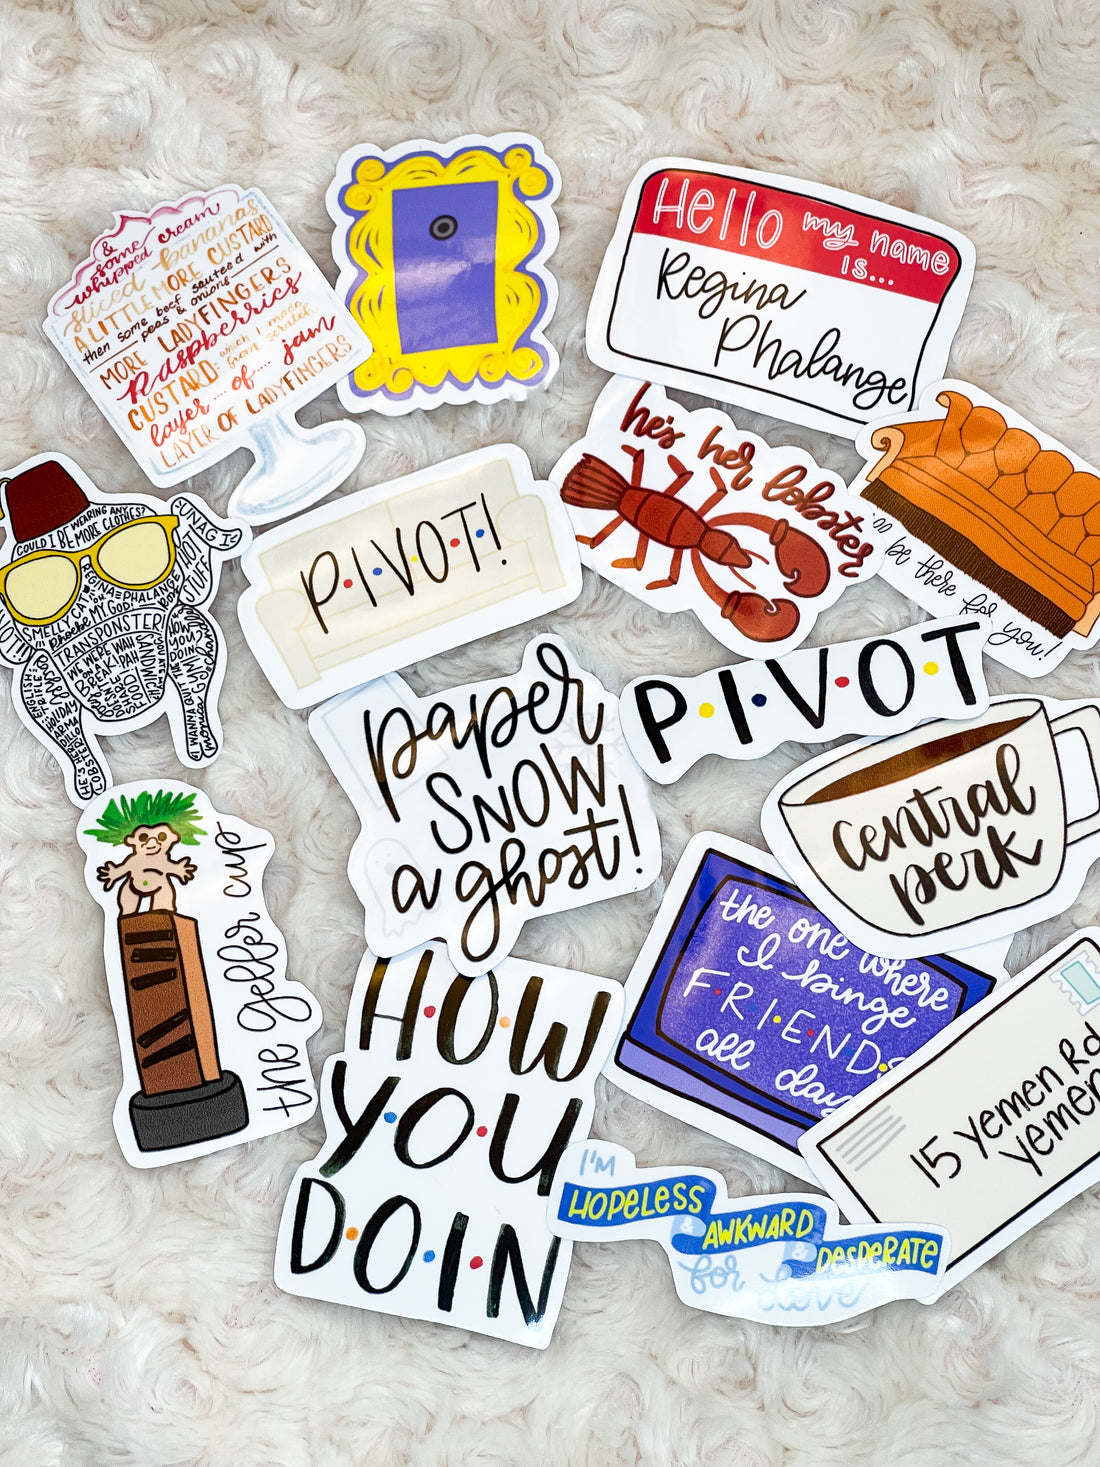 &
some
whipped cream
sliced bananas
A LITTLE MORE CUSTARD
then some beef sauteed with
peas & onions
MORE LADYFINGERS
Raspberries
CUSTARD: which I made
from scratch
layer... of... jam
LAYER OF LADYFINGERS
Hello my name
is...
Regina
Phalange
he's her lobster
be there for
you!
COULD I BE WEARING ANY
MORE CLOTHES?
UNAGI
SMELLY CAT
REGINA PHALANGE
OH
MY GOD!
TRANSPONSTER!
WE WERE
ON A
BREAK!
HOW
YOU
DOIN
HOLIDAY
ARMA
DILLO
HE'S HER
LOBSTER
I WANNA QUIT
THE GYM
P·I·V·O·T·!
P·I·V·O·T
paper
SNOW
a ghost!
central
perk
the geller cup
the one where
I binge
F·R·I·E·N·D·S
all day
H·O·W
Y·O·U
D·O·I·N
15 Yemen Rd
Yemen
I'M
HOPELESS
& AWKWARD
& DESPERATE
for love